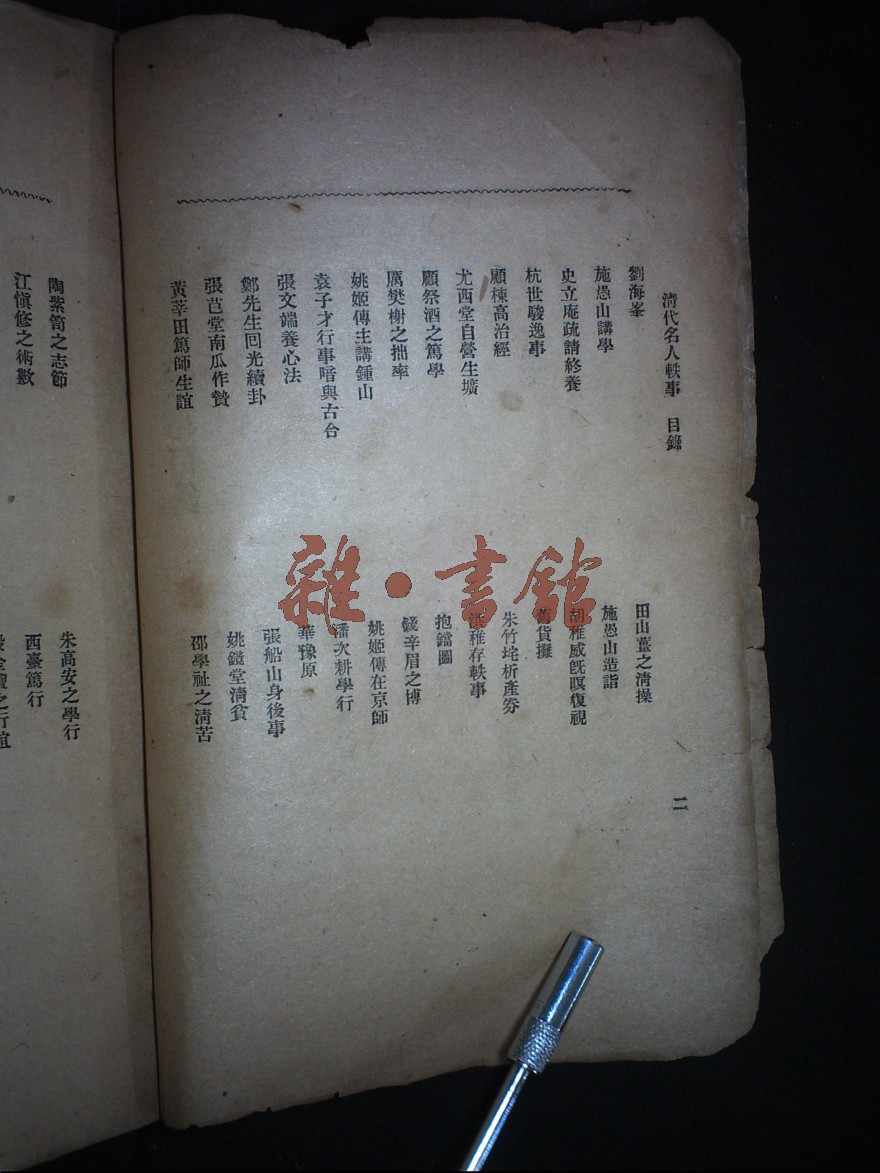 清代名人軼事　目錄
二
劉海峯
田山薑之清操
施愚山講學
施愚山造詣
史立庵疏請終養
胡稚威旣瞑復視
杭世駿逸事
舊貨攤
顧棟高治經
朱竹垞析產劵
尤西堂自營生壙
洪稚存軼事
顧祭酒之篤學
抱鐺圖
厲樊榭之拙率
錢辛眉之博
姚姬傳主講鍾山
姚姬傳在京師
袁子才行事暗與古合
潘次耕學行
張文端養心法
華豫原
鄭先生回光續卦
張船山身後事
張芑堂南瓜作贄
姚鏡堂清貧
黃莘田篤師生誼
邵學祉之清苦
陶紫笥之志節
朱高安之學行
江愼修之術數
西臺篤行
雜·書館